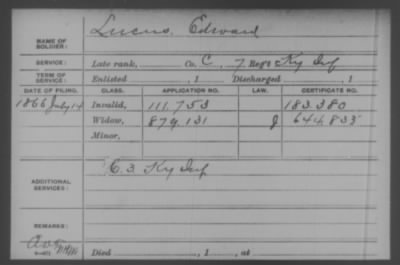 Lucas, Edward
NAME OF SOLDIER:
SERVICE: Late rank, Co. C, 7 Reg't Ky Inf
TERM OF SERVICE: Enlisted , 1 Discharged , 1
DATE OF FILING. CLASS. APPLICATION NO. LAW. CERTIFICATE NO.
1866 July 14 Invalid, 111.753 183.380
Widow, 879.131 J 644.835
Minor,
ADDITIONAL SERVICES: C. 3. Ky Inf
REMARKS:
Died , 1 , at